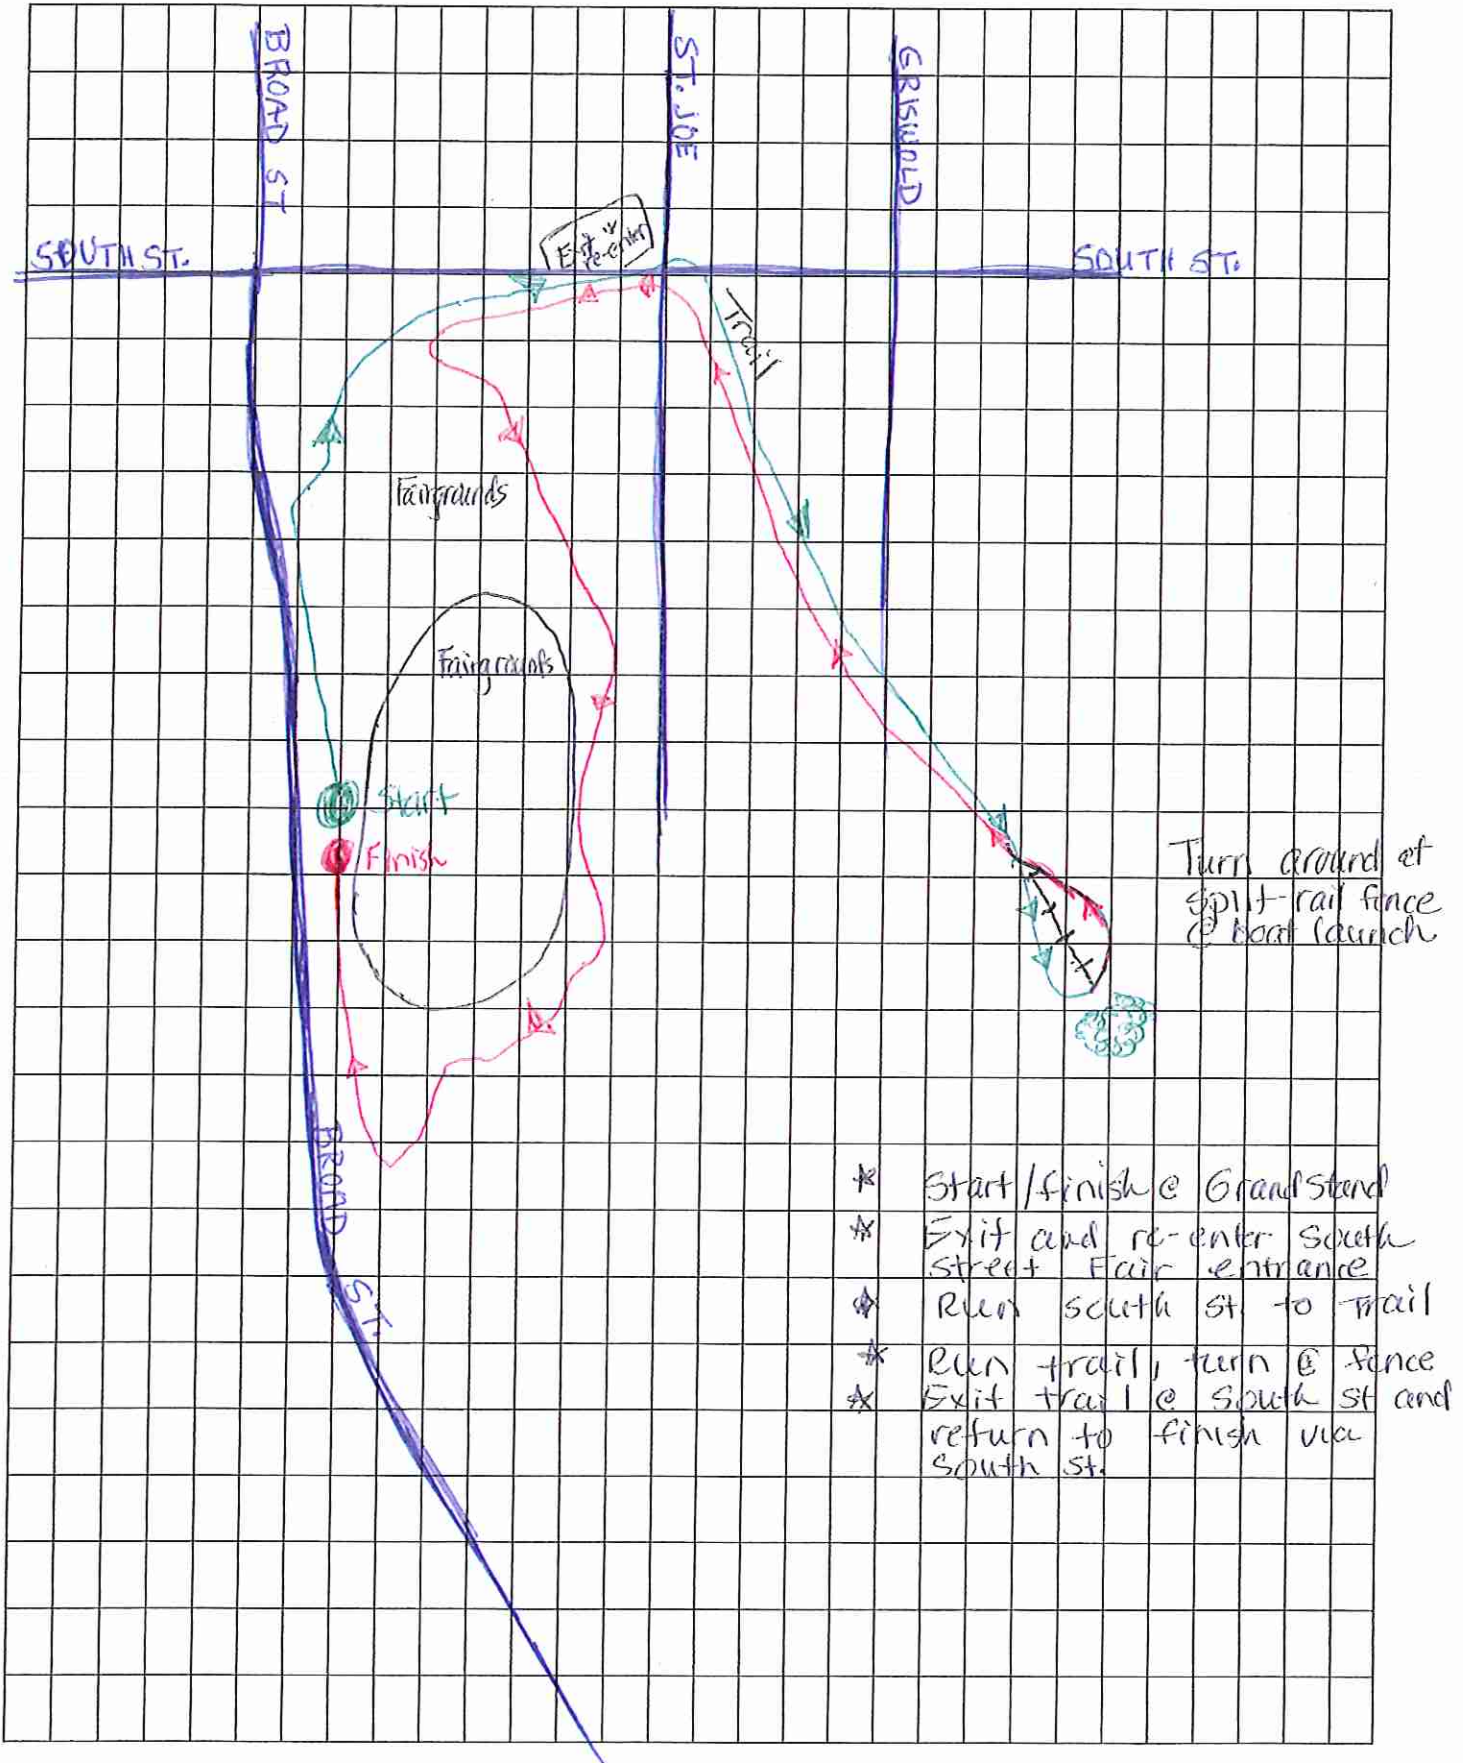 BROAD ST
ST. JOE
GRISWOLD
SOUTH ST.
Exit &
re-enter
SOUTH ST.
Trail
Fairgrounds
Fairgrounds
Start
Finish
Turn around at
split-rail fence
@ boat launch
BROAD ST.
* Start/finish @ Grandstand
* Exit and re-enter South
street Fair entrance
* Run south st. to Trail
* Run trail, turn @ fence
* Exit trail @ South st and
return to finish via
South st.